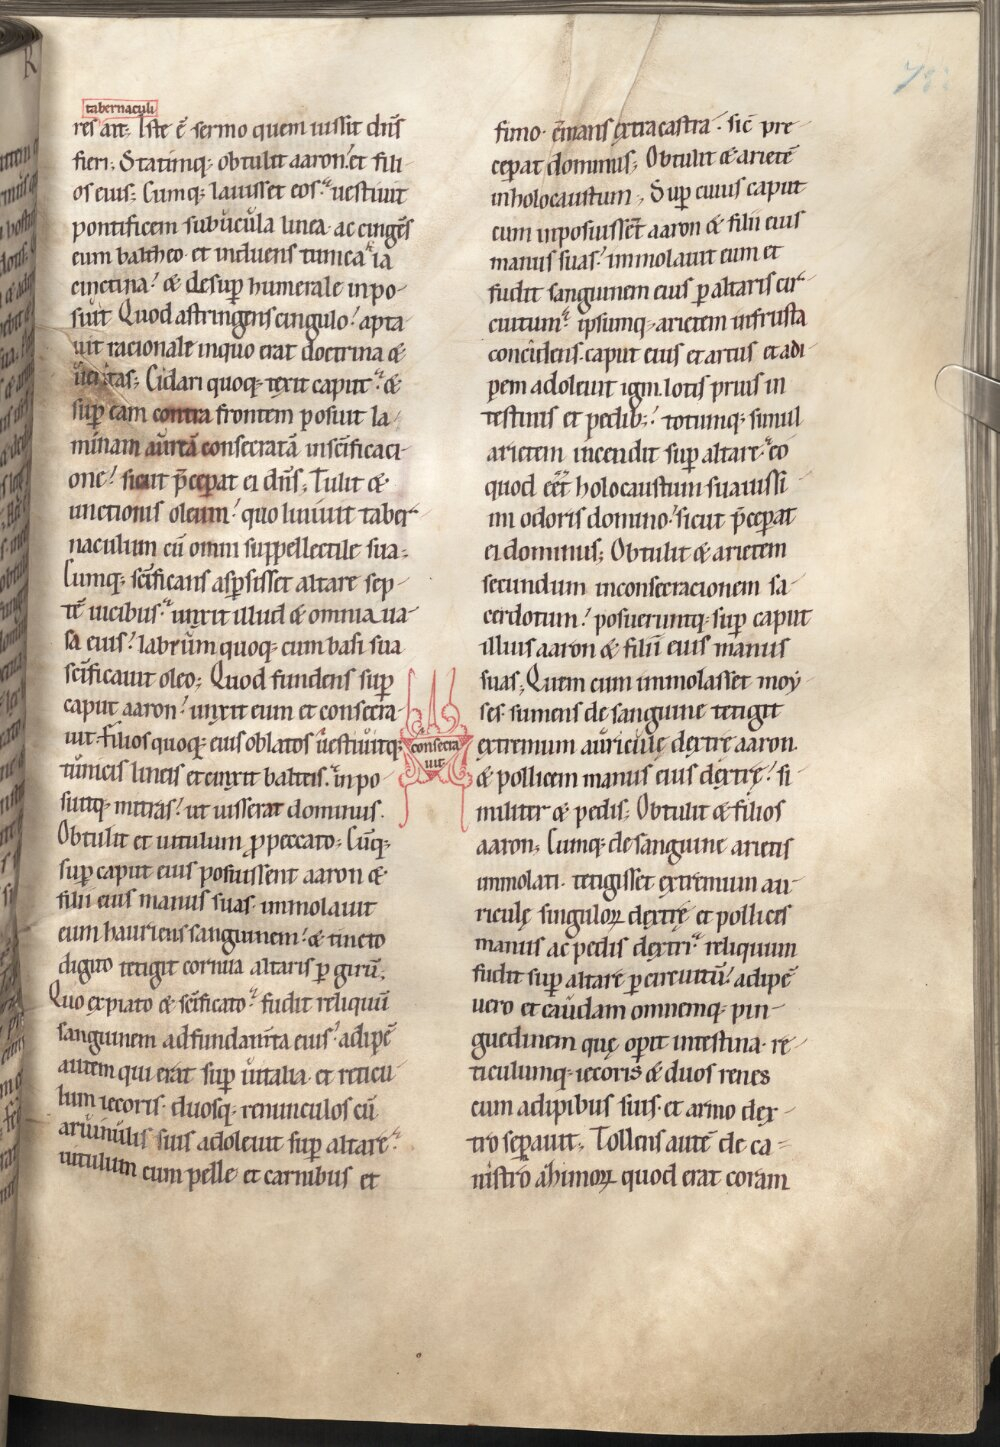 tabernaculi
res ait; Iste ē sermo quem iussit dn̄s
fieri; Statimq; obtulit aaron et fili
os eius; Cumq; lauisset eos uestiuit
pontificem subucula linea ac cingēs
eum baltheo et induens tunica ia
cinctina & desup̄ humerale inpo-
suit Quod astringens cingulo apta
uit racionale inquo erat doctrina &
ueritas; Cidari quoq; texit caput &
sup̄ eam contra frontem posuit la
minam aureā consecratā insc̄ificaci-
one sicut p̄cep̄at ei dn̄s; Tulit &
unctionis oleum quo liniuit taber-
naculum cū omni supp̄ellectile sua;
Cumq; sc̄ificans asp̄sisset altare sep-
tē uicibus unxit illud & omnia ua-
sa eius labrum quoq; cum basi sua
sc̄ificauit oleo; Quod fundens sup̄
caput aaron unxit eum et consecra-
uit filios quoq; eius oblatos uestiuitq;
tunicis lineis et cinxit balteis inpo-
suitq; mitras ut iusserat dominus.
Obtulit et uitulum ꝓ peccato; Cūq;
sup̄ caput eius posuissent aaron &
filii eius manus suas immolauit
eum hauriens sanguinem & tincto
digito tetigit cornua altaris p̄ girū;
Quo expiato & sc̄ificato fudit reliquū
sanguinem adfundam̄ta eius adipē
autem qui erat sup̄ uitalia et reticu
lum iecoris duosq; renunculos cū
aruinulis suis adoleuit sup̄ altare
uitulum cum pelle et carnibus et
consecra
uit
fimo cr̄emans extracastra sic̄ pre-
cep̄at dominus; Obtulit & arietē
inholocaustum; Sup̄ cuius caput
cum inposuissēt aaron & filii eius
manus suas immolauit eum et
fudit sanguinem eius p̄ altaris cir-
cuitum ipsumq; arietem infrusta
concidens caput eius et artus et adi-
pem adoleuit igni lotis prius in
testinis et pedib; totumq; simul
arietem incendit sup̄ altare eo
quod eēt holocaustum suauissi
mi odoris domino sicut p̄cep̄at
ei dominus; Obtulit & arietem
secundum inconsecracionem sa-
cerdotum posueruntq; sup̄ caput
illius aaron & filii eius manus
suas; Quem cum immolasset moy-
ses sumens de sanguine tetigit
extremum auriculę dextrę aaron.
& pollicem manus eius dextrę si-
militer & pedis; Obtulit & filios
aaron; Cumq; de sanguine arietis
immolati tetigisset extremum au-
riculę singuloꝝ dextrę et pollices
manus ac pedis dextri reliquum
fudit sup̄ altare p̄ circuitū adipē
uero et caudam omnemq; pin-
guedinem quę op̄it intestina re-
ticulumq; iecoris & duos renes
cum adipibus suis et armo dex-
tro sep̄auit; Tollens autē de ca-
nistro ahimoꝝ quod erat coram